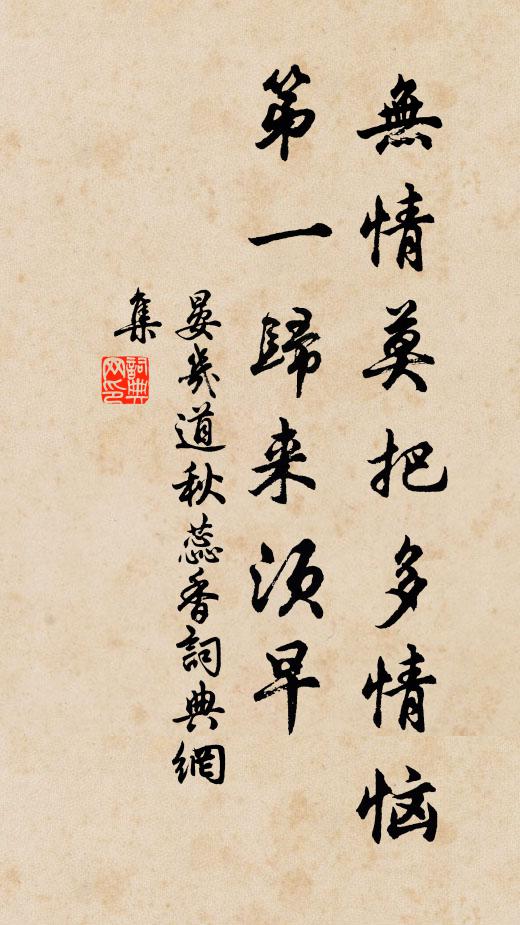 無情莫把多情恼
第一歸来须早
晏幾道秋蕊香詞典網
集
詞典
网印